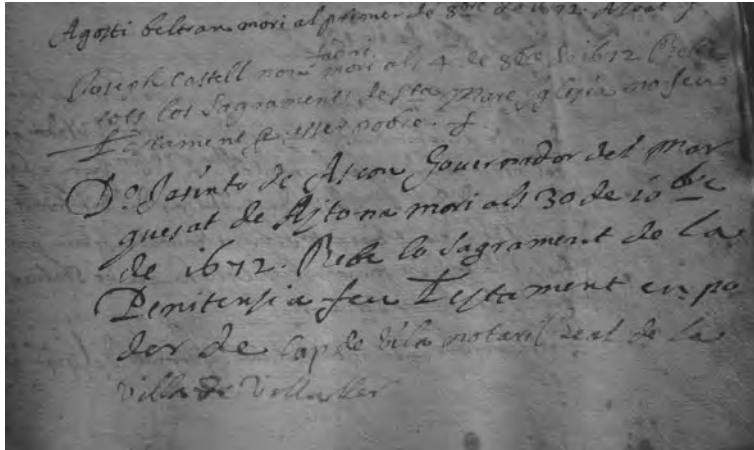 Agosti beltran mori al primer de 8bre de 1672. Albat f
fadri
Joseph Castell nou mori als 4 de 8bre de 1672. Rebe
tots los Sagraments de Sta Mare yglesia no feu
Testament per esser pobre. f
Do. Jasinto de Ascon Gouernador del mar
quesat de Aytona mori als 30 de 10bre
de 1672. Rebe lo Sagrament de la
Penitensia feu Testament en po
der de Cap de vila notari Real de la
villa de Villaller